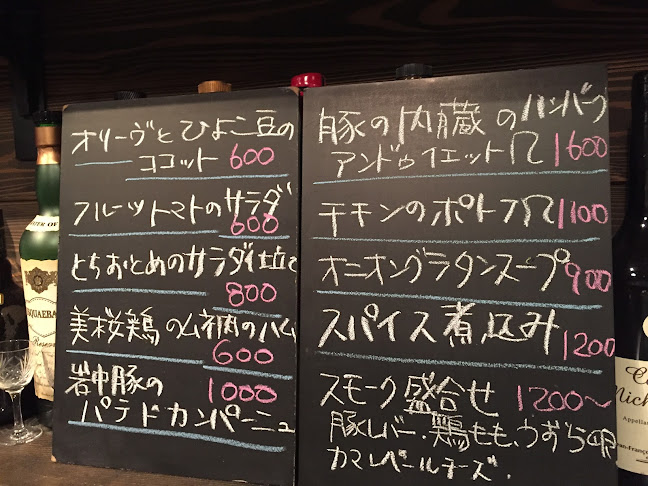 オリーヴとひよこ豆の
ココット 600
フルーツトマトのサラダ
600
とちおとめのサラダ仕立て
800
美桜鶏のムネ肉のハム
600
岩中豚の 1000
パテドカンパーニュ
豚の内臓のハンバーグ
アンドゥイエット 1600
チキンのポトフ 1100
オニオングラタンスープ 900
スパイス煮込み 1200
スモーク盛合せ 1200〜
豚レバー・鶏もも、うずらの卵
カマンベールチーズ.
Reserva